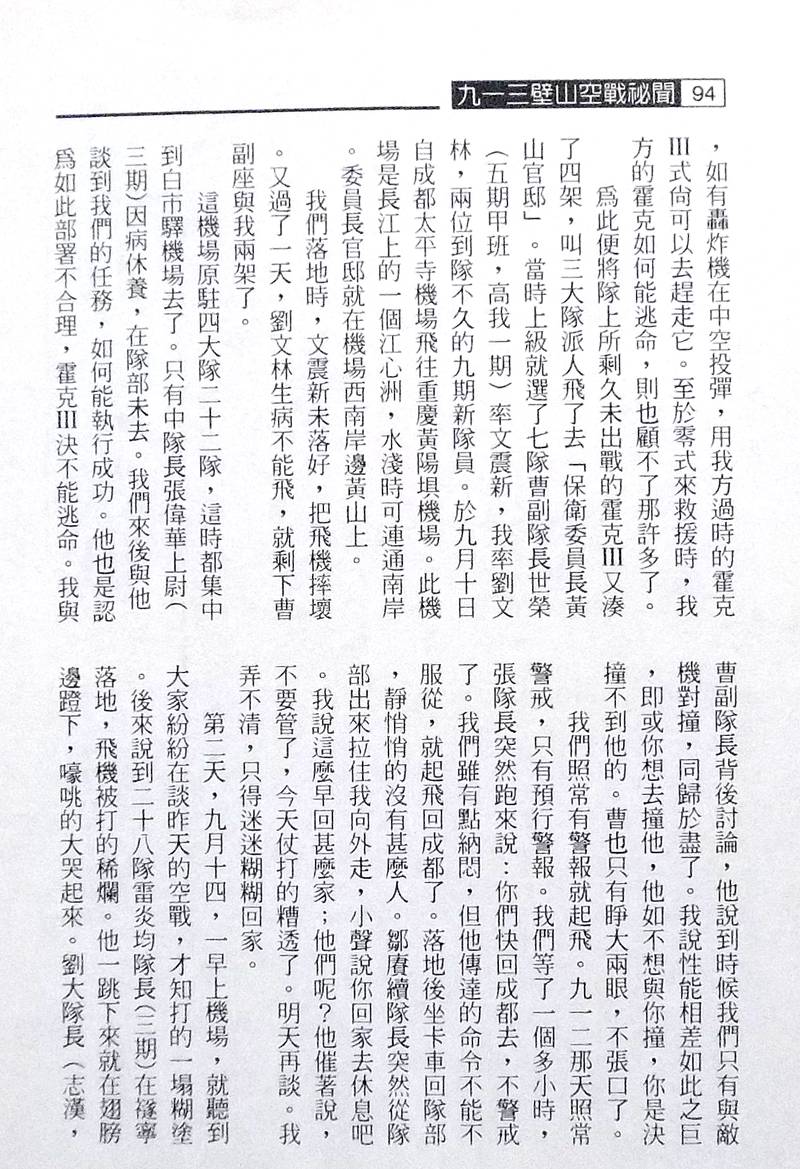 九一三壁山空戰祕聞 94
，如有轟炸機在中空投彈，用我方過時的霍克
III式尚可以去趕走它。至於零式來救援時，我
方的霍克如何能逃命，則也顧不了那許多了。
為此便將隊上所剩久未出戰的霍克III又湊
了四架，叫三大隊派人飛了去「保衛委員長黃
山官邸」。當時上級就選了七隊曹副隊長世榮
（五期甲班，高我一期）率文震新，我率劉文
林，兩位到隊不久的九期新隊員。於九月十日
自成都太平寺機場飛往重慶黃陽垻機場。此機
場是長江上的一個江心洲，水淺時可連通南岸
。委員長官邸就在機場西南岸邊黃山上。
我們落地時，文震新未落好，把飛機摔壞
。又過了一天，劉文林生病不能飛，就剩下曹
副座與我兩架了。
這機場原駐四大隊二十二隊，這時都集中
到白市驛機場去了。只有中隊長張偉華上尉（
三期）因病休養，在隊部未去。我們來後與他
談到我們的任務，如何能執行成功。他也是認
為如此部署不合理，霍克III決不能逃命。我與
曹副隊長背後討論，他說到時候我們只有與敵
機對撞，同歸於盡了。我說性能相差如此之巨
，即或你想去撞他，他如不想與你撞，你是決
撞不到他的。曹也只有睜大兩眼，不張口了。
我們照常有警報就起飛。九一二那天照常
警戒，只有預行警報。我們等了一個多小時，
張隊長突然跑來說：你們快回成都去，不警戒
了。我們雖有點納悶，但他傳達的命令不能不
服從，就起飛回成都了。落地後坐卡車回隊部
，靜悄悄的沒有甚麼人。鄒賡續隊長突然從隊
部出來拉住我向外走，小聲說你回家去休息吧
。我說這麼早回甚麼家；他們呢？他催著說，
不要管了，今天仗打的糟透了。明天再談。我
弄不清，只得迷迷糊糊回家。
第二天，九月十四，一早上機場，就聽到
大家紛紛在談昨天的空戰，才知打的一塌糊塗
。後來說到二十八隊雷炎均隊長（三期）在遂寧
落地，飛機被打的稀爛。他一跳下來就在翅膀
邊蹬下，嚎咷的大哭起來。劉大隊長（志漢，